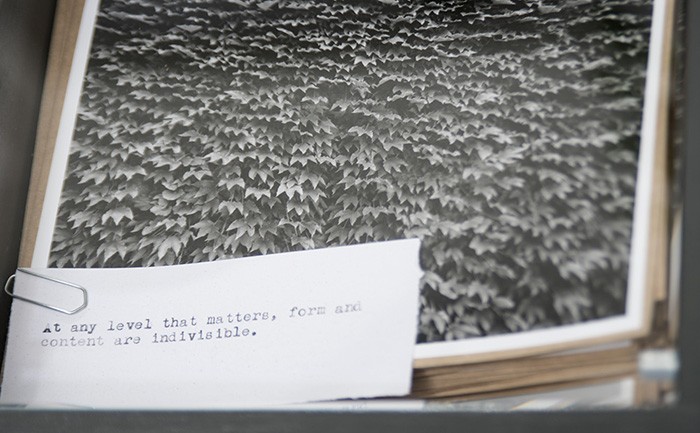 At any level that matters, form and
content are indivisible.